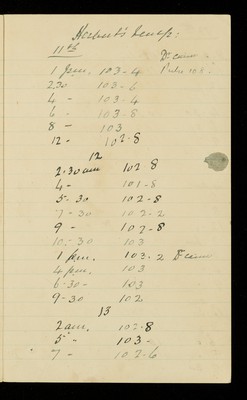 Herbert's temps:
11th Dr came
1 p.m. 103-4 Pulse
2.30 103-6
4 - 103-4
6 - 103-8
8 - 103
12 - 102-8
12
2-30 am 102-8
4 - 101-8
5-30 102-8
7-30 102-2
9 - 102-8
10-30 103
1 p.m. 103-2 Dr came
4 p.m. 103
6-30 - 103
9-30 102
13
2 a.m. 102-8
5 - 103-
7 - 102-6